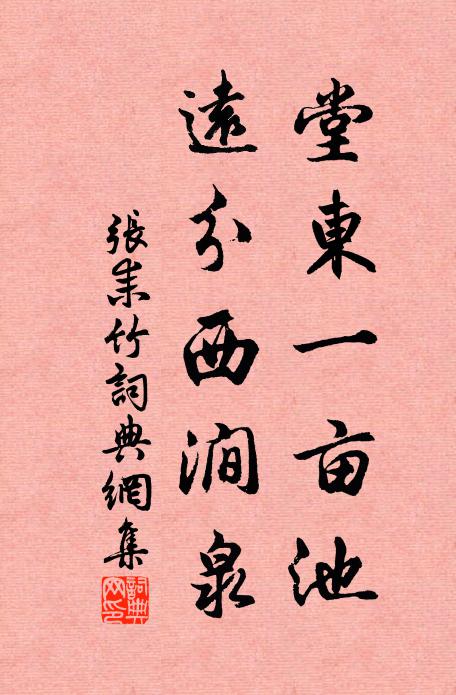 堂東一亩池
遠分西澗泉
張耒竹詞典網集
詞典網印